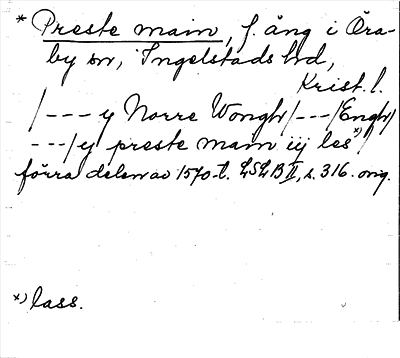 * Preste main, f. äng i Öra-
by sn, Ingelstads hd,
Krist. l.
/--- y Norre Wongh/---/Engh/
---/y preste main iij les x)/
förra delen av 1570-t. LSLB II, s. 316. orig.
x) lass.